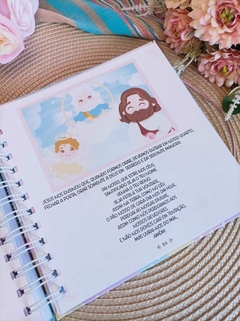 JESUS NOS ENSINOU QUE, QUANDO FORMOS ORAR, DEVEMOS ENTRAR EM NOSSO QUARTO,
FECHAR A PORTA, ORAR SOMENTE A DEUS EM SEGREDO E DA SEGUINTE MANEIRA:
PAI NOSSO, QUE ESTÁS NOS CÉUS,
SANTIFICADO SEJA O TEU NOME.
VENHA O TEU REINO,
SEJA FEITA A TUA VONTADE,
ASSIM NA TERRA, COMO NO CÉU.
O PÃO NOSSO DE CADA DIA NOS DAI HOJE,
PERDOA AS NOSSAS DÍVIDAS,
ASSIM COMO NÓS PERDOAMOS
AOS NOSSOS DEVEDORES.
E NÃO NOS DEIXES CAIR EM TENTAÇÃO,
MAS LIVRA-NOS DO MAL,
AMÉM!